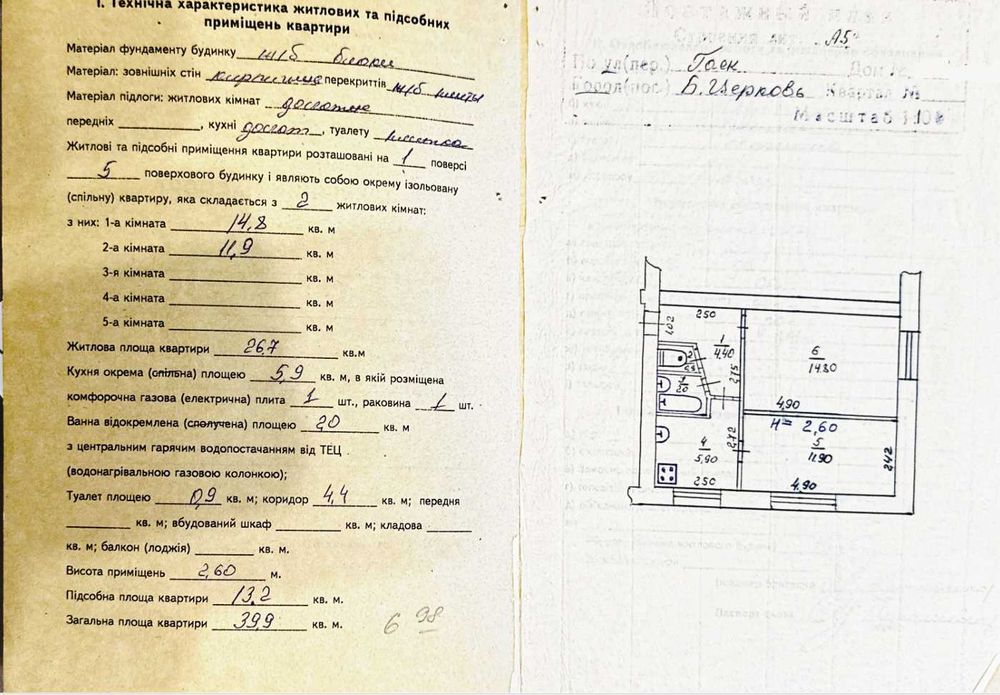 І. Технічна характеристика житлових та підсобних
приміщень квартири
Матеріал фундаменту будинку ж/б блоки
Матеріал: зовнішніх стін кирпичные перекриттів ж/б плиты
Матеріал підлоги: житлових кімнат дощатые
передніх , кухні дощат , туалету плитка
Житлові та підсобні приміщення квартири розташовані на 1 поверсі
5 поверхового будинку і являють собою окрему ізольовану
(спільну) квартиру, яка складається з 2 житлових кімнат:
з них: 1-а кімната 14,8 кв. м
2-а кімната 11,9 кв. м
3-я кімната кв. м
4-а кімната кв. м
5-а кімната кв. м
Житлова площа квартири 26,7 кв.м
Кухня окрема (спільна) площею 5,9 кв. м, в якій розміщена
комфорочна газова (електрична) плита 1 шт., раковина 1 шт.
Ванна відокремлена (сполучена) площею 2,0 кв. м
з центральним гарячим водопостачанням від ТЕЦ
(водонагрівальною газовою колонкою);
Туалет площею 0,9 кв. м; коридор 4,4 кв. м; передня
кв. м; вбудований шкаф кв. м; кладова
кв. м; балкон (лоджія) кв. м.
Висота приміщень 2,60 м.
Підсобна площа квартири 13,2 кв. м.
Загальна площа квартири 39,9 кв. м.
6 98
Поэтажный план
Строения лит. А5
По ул(пер.) Гаек Дом №
Город(пос.) Б. Церковь Квартал №
Масштаб 1:100
250
102
1
4,40
2
0,9
3
2,0
275
6
14,80
4,90
H= 2,60
4
5,90
272
250
5
11,90
242
4,90